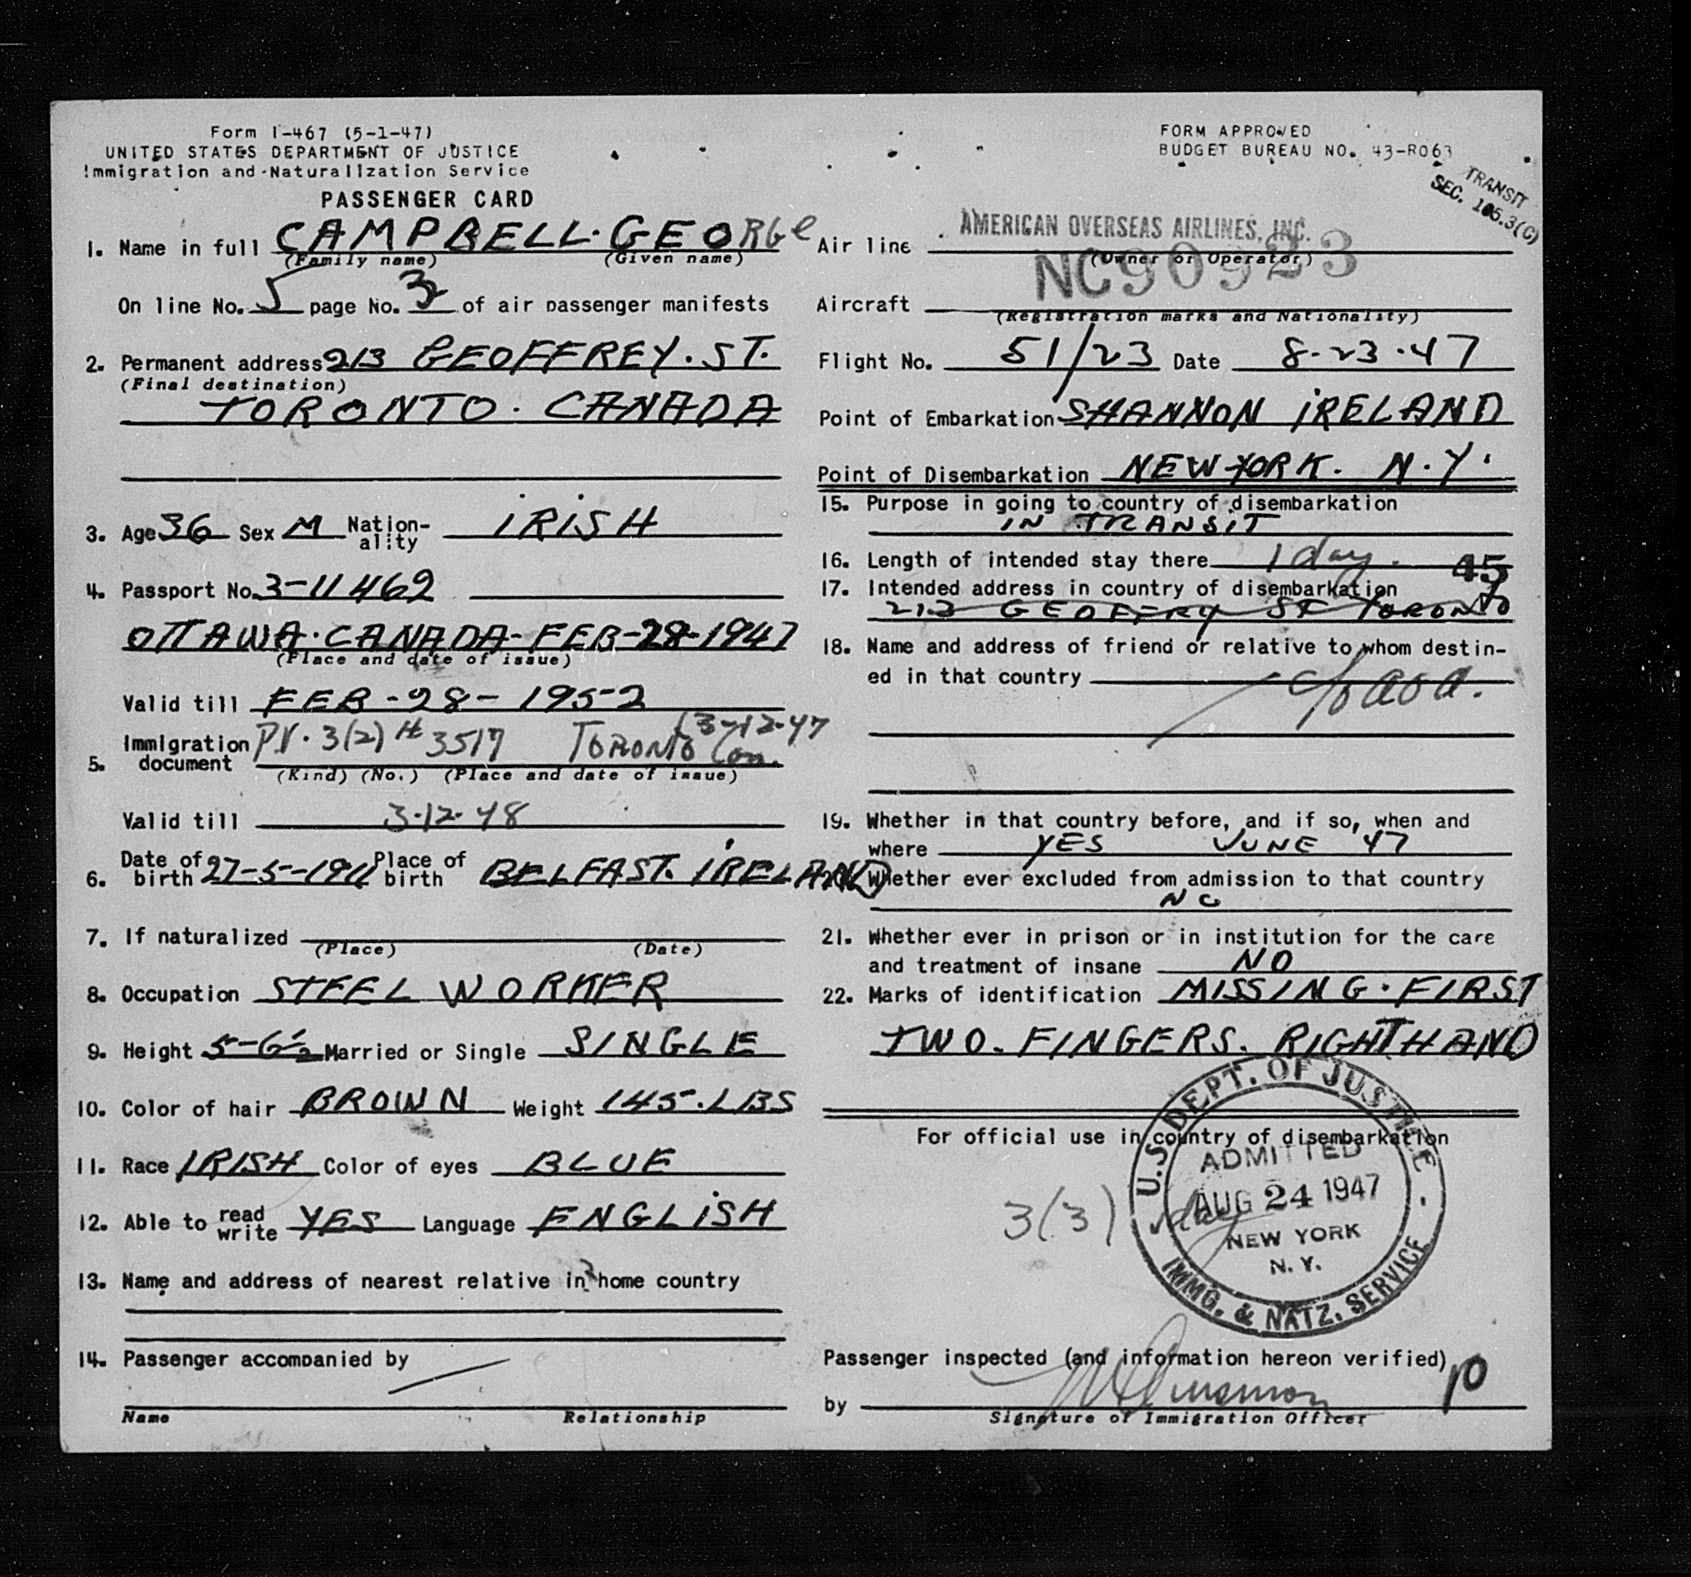 Form I-467 (5-1-47)
UNITED STATES DEPARTMENT OF JUSTICE
Immigration and Naturalization Service
PASSENGER CARD
FORM APPROVED
BUDGET BUREAU NO. 43-R063
TRANSIT
SEC. 105.3(C)
1. Name in full CAMPBELL. GEORGe
(Family name) (Given name)
On line No. 5 page No. 3 of air passenger manifests
2. Permanent address 213 GEOFFREY. ST.
(Final destination)
TORONTO. CANADA
3. Age 36 Sex M Nation-ality IRISH
4. Passport No. 3-11462
OTTAWA. CANADA- FEB-28-1947
(Place and date of issue)
Valid till FEB-28-1952
5. Immigration document PV. 3(2) # 3517 TORONTO Can. 3-12-47
(Kind) (No.) (Place and date of issue)
Valid till 3-12-48
6. Date of birth 27-5-1911 Place of birth BELFAST. IRELAND
7. If naturalized
(Place) (Date)
8. Occupation STEEL WORKER
9. Height 5-6½ Married or Single SINGLE
10. Color of hair BROWN Weight 145. LBS
11. Race IRISH Color of eyes BLUE
12. Able to read write YES Language ENGLISH
13. Name and address of nearest relative in home country
14. Passenger accompanied by
Name Relationship
Air line AMERICAN OVERSEAS AIRLINES, INC.
(Owner or Operator)
Aircraft NC90923
(Registration marks and Nationality)
Flight No. 51/23 Date 8-23-47
Point of Embarkation SHANNON IRELAND
Point of Disembarkation NEW YORK. N.Y.
15. Purpose in going to country of disembarkation
IN TRANSIT
16. Length of intended stay there 1 day.
45
17. Intended address in country of disembarkation
213 GEOFFRY ST TORONTO
18. Name and address of friend or relative to whom destin-
ed in that country c/o AOA.
19. Whether in that country before, and if so, when and
where YES JUNE 47
Whether ever excluded from admission to that country
NO
21. Whether ever in prison or in institution for the care
and treatment of insane NO
22. Marks of identification MISSING. FIRST
TWO. FINGERS. RIGHT HAND
For official use in country of disembarkation
3(3) 1 day
U.S. DEPT. OF JUSTICE
ADMITTED
AUG 24 1947
NEW YORK
N.Y.
IMMG. & NATZ. SERVICE
Passenger inspected (and information hereon verified)
by
10
Signature of Immigration Officer